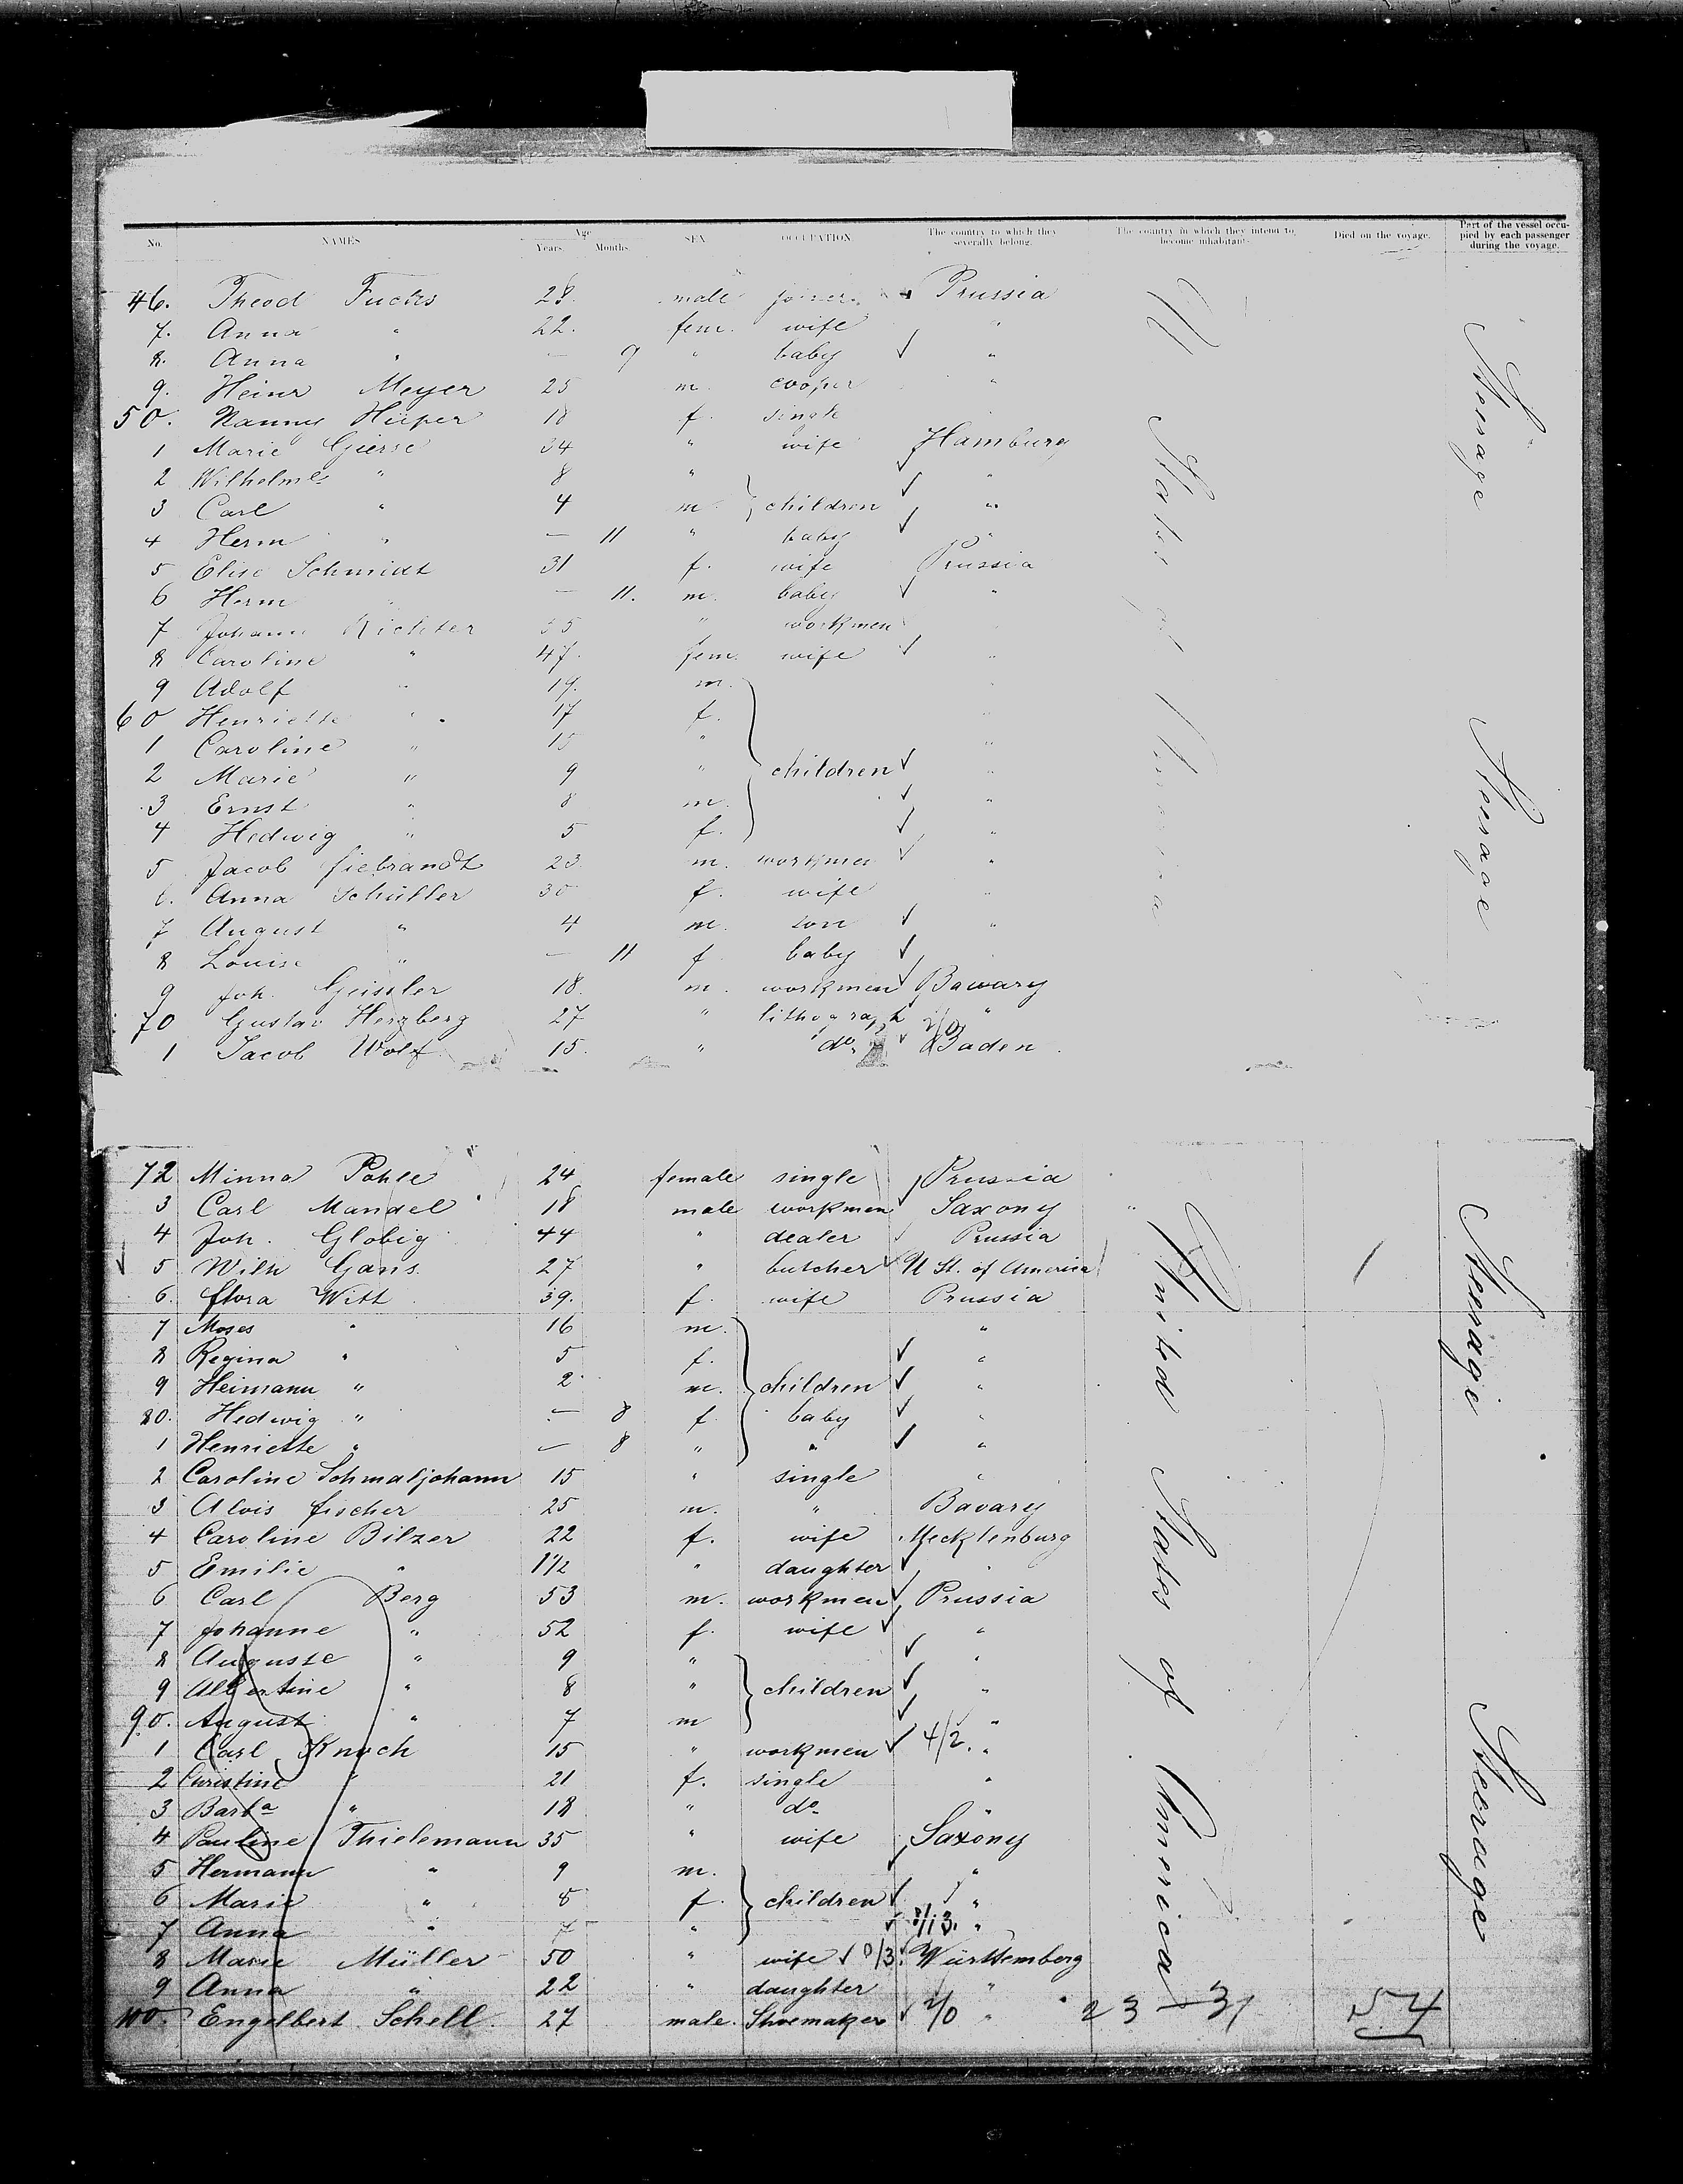 No. NAMES Age Years. Months. SEX OCCUPATION The country to which they severally belong. The country in which they intend to become inhabitants. Died on the voyage. Part of the vessel occupied by each passenger during the voyage.
46. Theod Fuchs 28 male joiner Prussia
7. Anna " 22. fem. wife "
8. Anna " — 9 " baby "
9. Heinr Meyer 25 m. cooper "
50. Nanny Hüper 18 f. single
1 Marie Gierse 34 " wife Hamburg
2 Wilhelm " 8 " "
3 Carl " 4 m. children "
4 Herm " — 11 " baby "
5 Elise Schmidt 31 f. wife Prussia
6 Herm — 11. m. baby "
7 Johann Richter 55 " workmen
8 Caroline " 47. fem. wife "
9 Adolf " 19. m.
60 Henriette " 17 f. "
1 Caroline " 15 " "
2 Marie " 9 " children "
3 Ernst " 8 m. "
4 Hedwig " 5 f. "
5 Jacob fiebrandt 23 m. workmen "
6. Anna Schüller 30 f. wife "
7 August " 4 m. son "
8 Louise " — 11 f baby
9 Joh. Geissler 18. m. workmen Bawary
70 Gustav Herzberg 27 " lithograph "
1 Jacob Wolf 15. " do Baden
72 Minna Pohle 24 female single Prussia
3 Carl Mandel 18 male workmen Saxony
4 Joh. Globig 44 " dealer Prussia
5 Wilh Gans 27 " butcher U St. of America
6. flora Witt 39. f. wife Prussia
7 Moses " 16 m. "
8 Regina " 5 f. "
9 Heimann " 2 m. children "
80. Hedwig " — 8 f baby "
1 Henriette " — 8 " " "
2 Caroline Schmaljohann 15 " single "
3 Alois fischer 25 m. " Bavary
4 Caroline Bilzer 22 f. wife Mecklenburg
5 Emilie " 1 1/2 " daughter "
6 Carl Berg 53 m. workmen Prussia
7 Johanne " 52 f. wife "
8 Auguste " 9 " "
9 Albertine " 8 " children "
90. August " 7 m "
1 Carl Knoch 15 " workmen 4/2. "
2 Christine " 21 f. single "
3 Barba " 18 " do "
4 Pauline Thielemann 35 " wife Saxony
5 Hermann " 9 m. "
6 Marie " 8 f. children "
7 Anna " 7 " "
8 Marie Müller 50 " wife 0/3. Württemberg
9 Anna " 22 " daughter "
100. Engelbert Schell 27 male. Shoemaker " 23 — 31 54
U States of America
United States of America
Steerage
Steerage
Steerage
Steerage